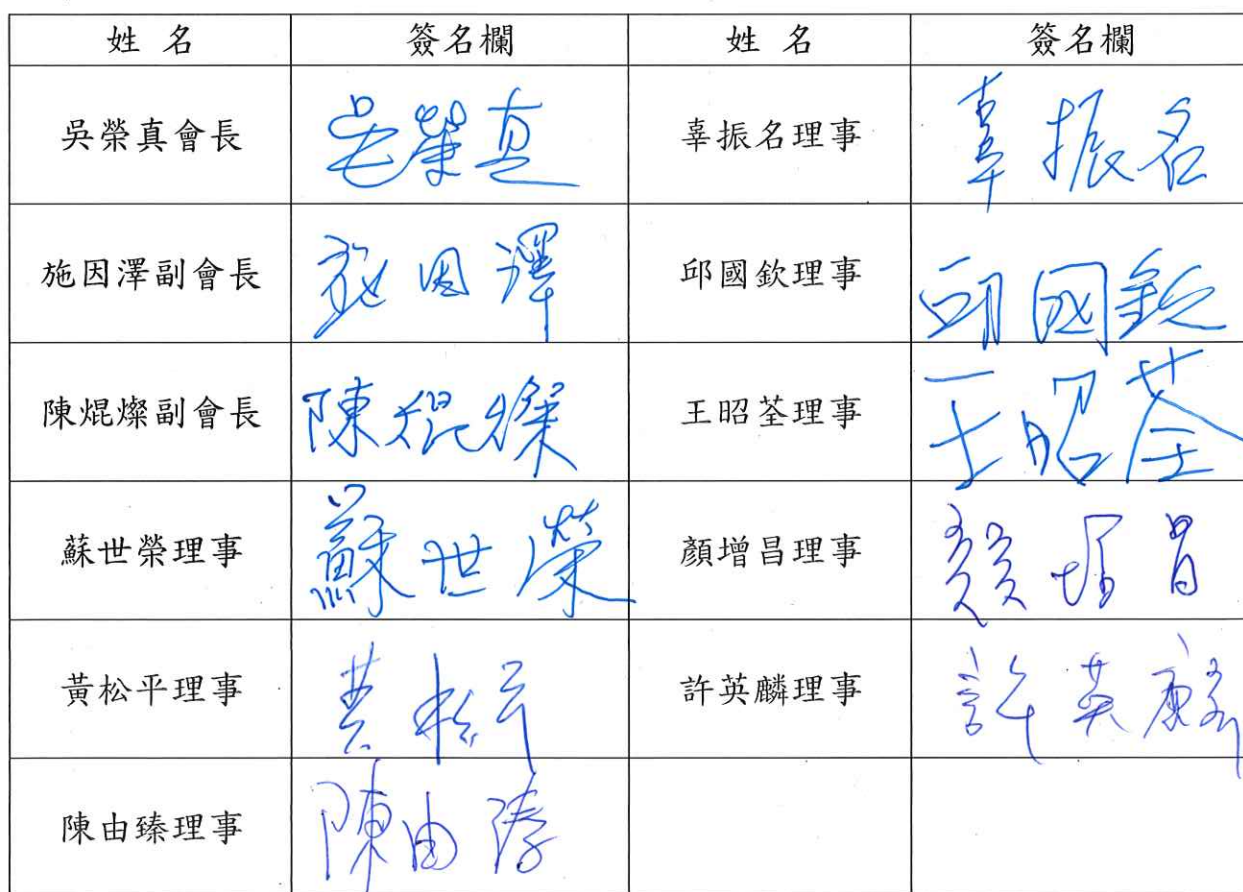 姓 名 簽名欄 姓 名 簽名欄
吳榮真會長 吳榮真 辜振名理事 辜振名
施因澤副會長 施因澤 邱國欽理事 邱國欽
陳焜燦副會長 陳焜燦 王昭荃理事 王昭荃
蘇世榮理事 蘇世榮 顏增昌理事 顏增昌
黃松平理事 黃松平 許英麟理事 許英麟
陳由臻理事 陳由臻